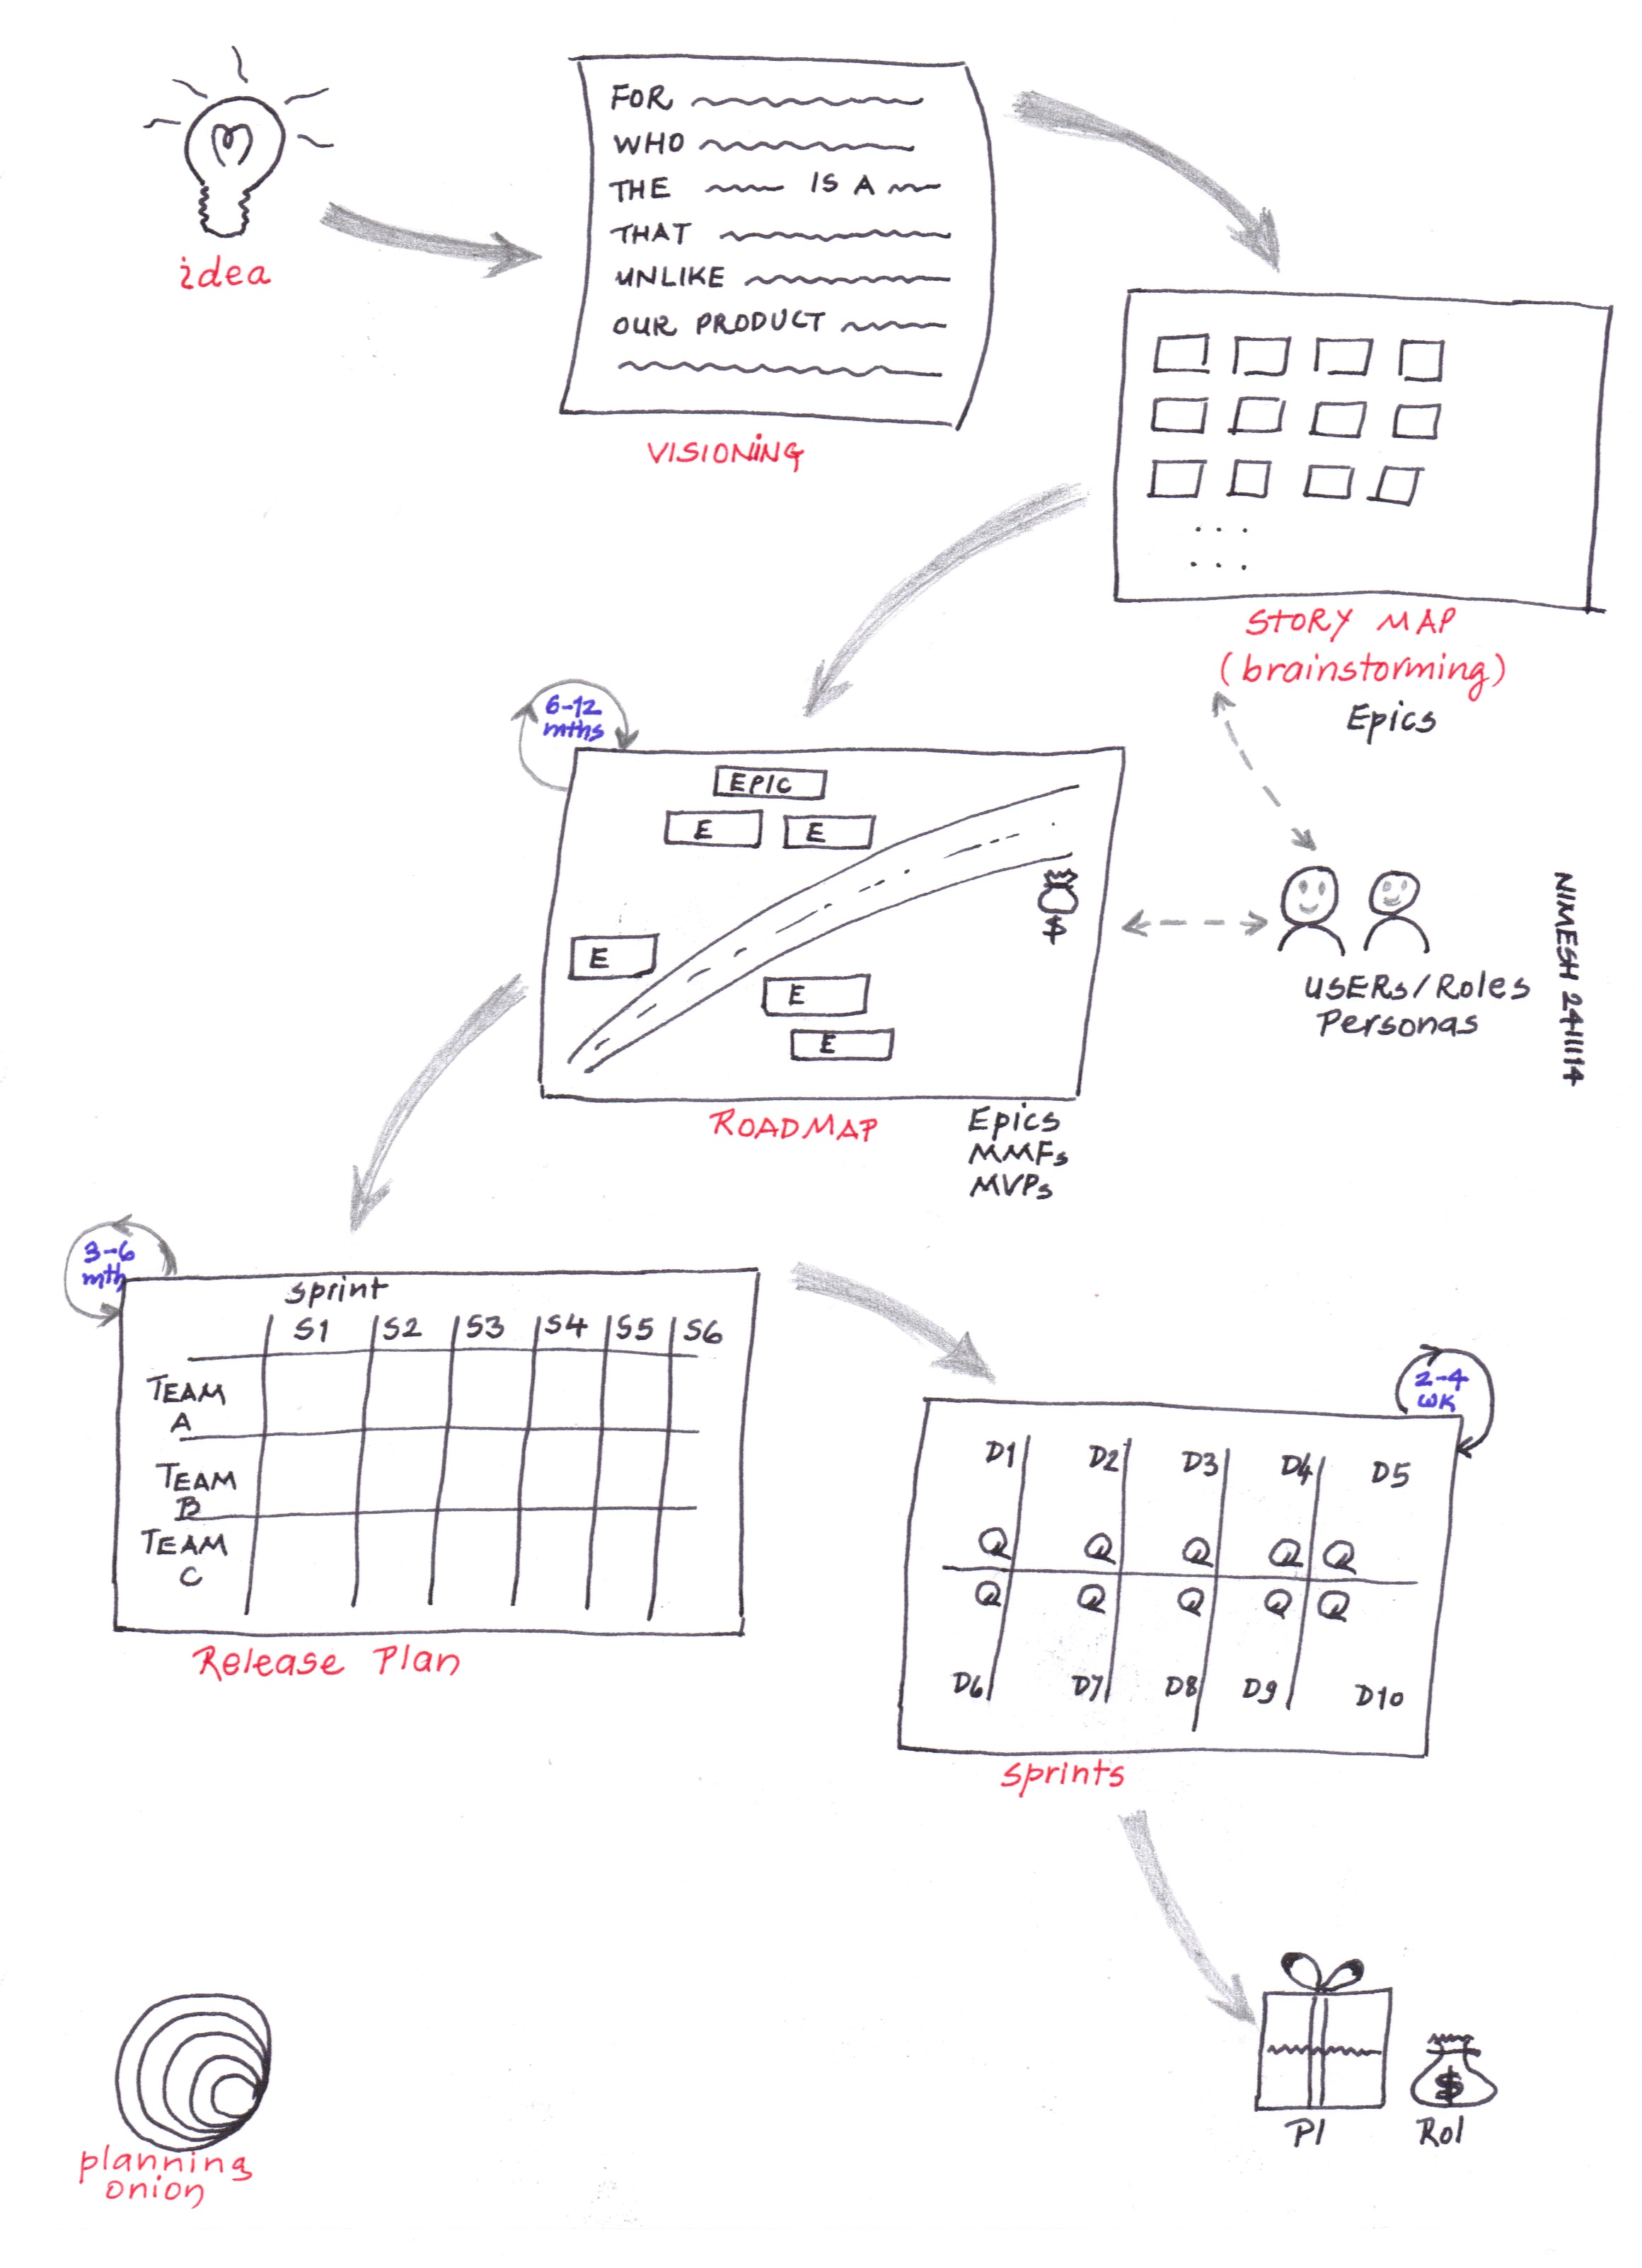 idea
FOR
WHO
THE IS A
THAT
UNLIKE
OUR PRODUCT
VISIONING
STORY MAP
(brainstorming)
Epics
6-12
mths
EPIC
E E
E
E
E
$
ROADMAP
Epics
MMFs
MVPs
USERs/Roles
Personas
NIMESH 241114
3-6
mth
Sprint
S1 S2 S3 S4 S5 S6
TEAM
A
TEAM
B
TEAM
C
Release Plan
2-4
wk
D1 D2 D3 D4 D5
Q Q Q Q Q
Q Q Q Q Q
D6 D7 D8 D9 D10
Sprints
$
PI
RoI
planning
onion